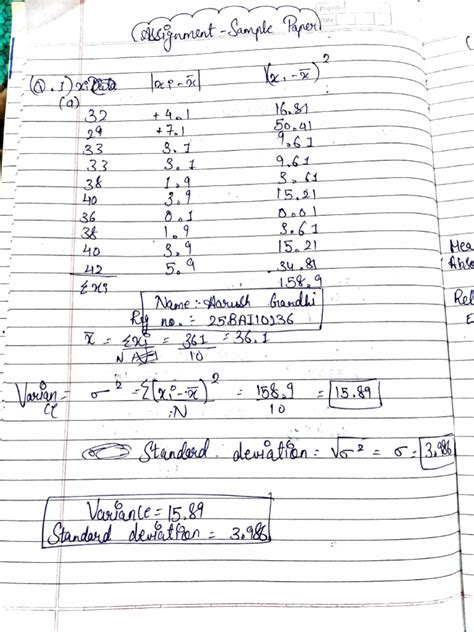 Assignment - Sample Paper
Q.1) xi |xi - x̄| (xi - x̄)²
(a)
32 +4.1 16.81
29 +7.1 50.41
33 3.1 9.61
33 3.1 9.61
38 1.9 3.61
40 3.9 15.21
36 0.1 0.01
38 1.9 3.61
40 3.9 15.21
42 5.9 34.81
Σxi 158.9
Name :- Aarush Gandhi
Reg no. :- 25BAI10136
x̄ = Σxi / N = 361 / 10 = 36.1
Variance σ² = Σ(xi - x̄)² / N = 158.9 / 10 = 15.89
Standard deviation = √σ² = σ = 3.986
Variance = 15.89
Standard deviation = 3.986
Mea
Abso
Rel